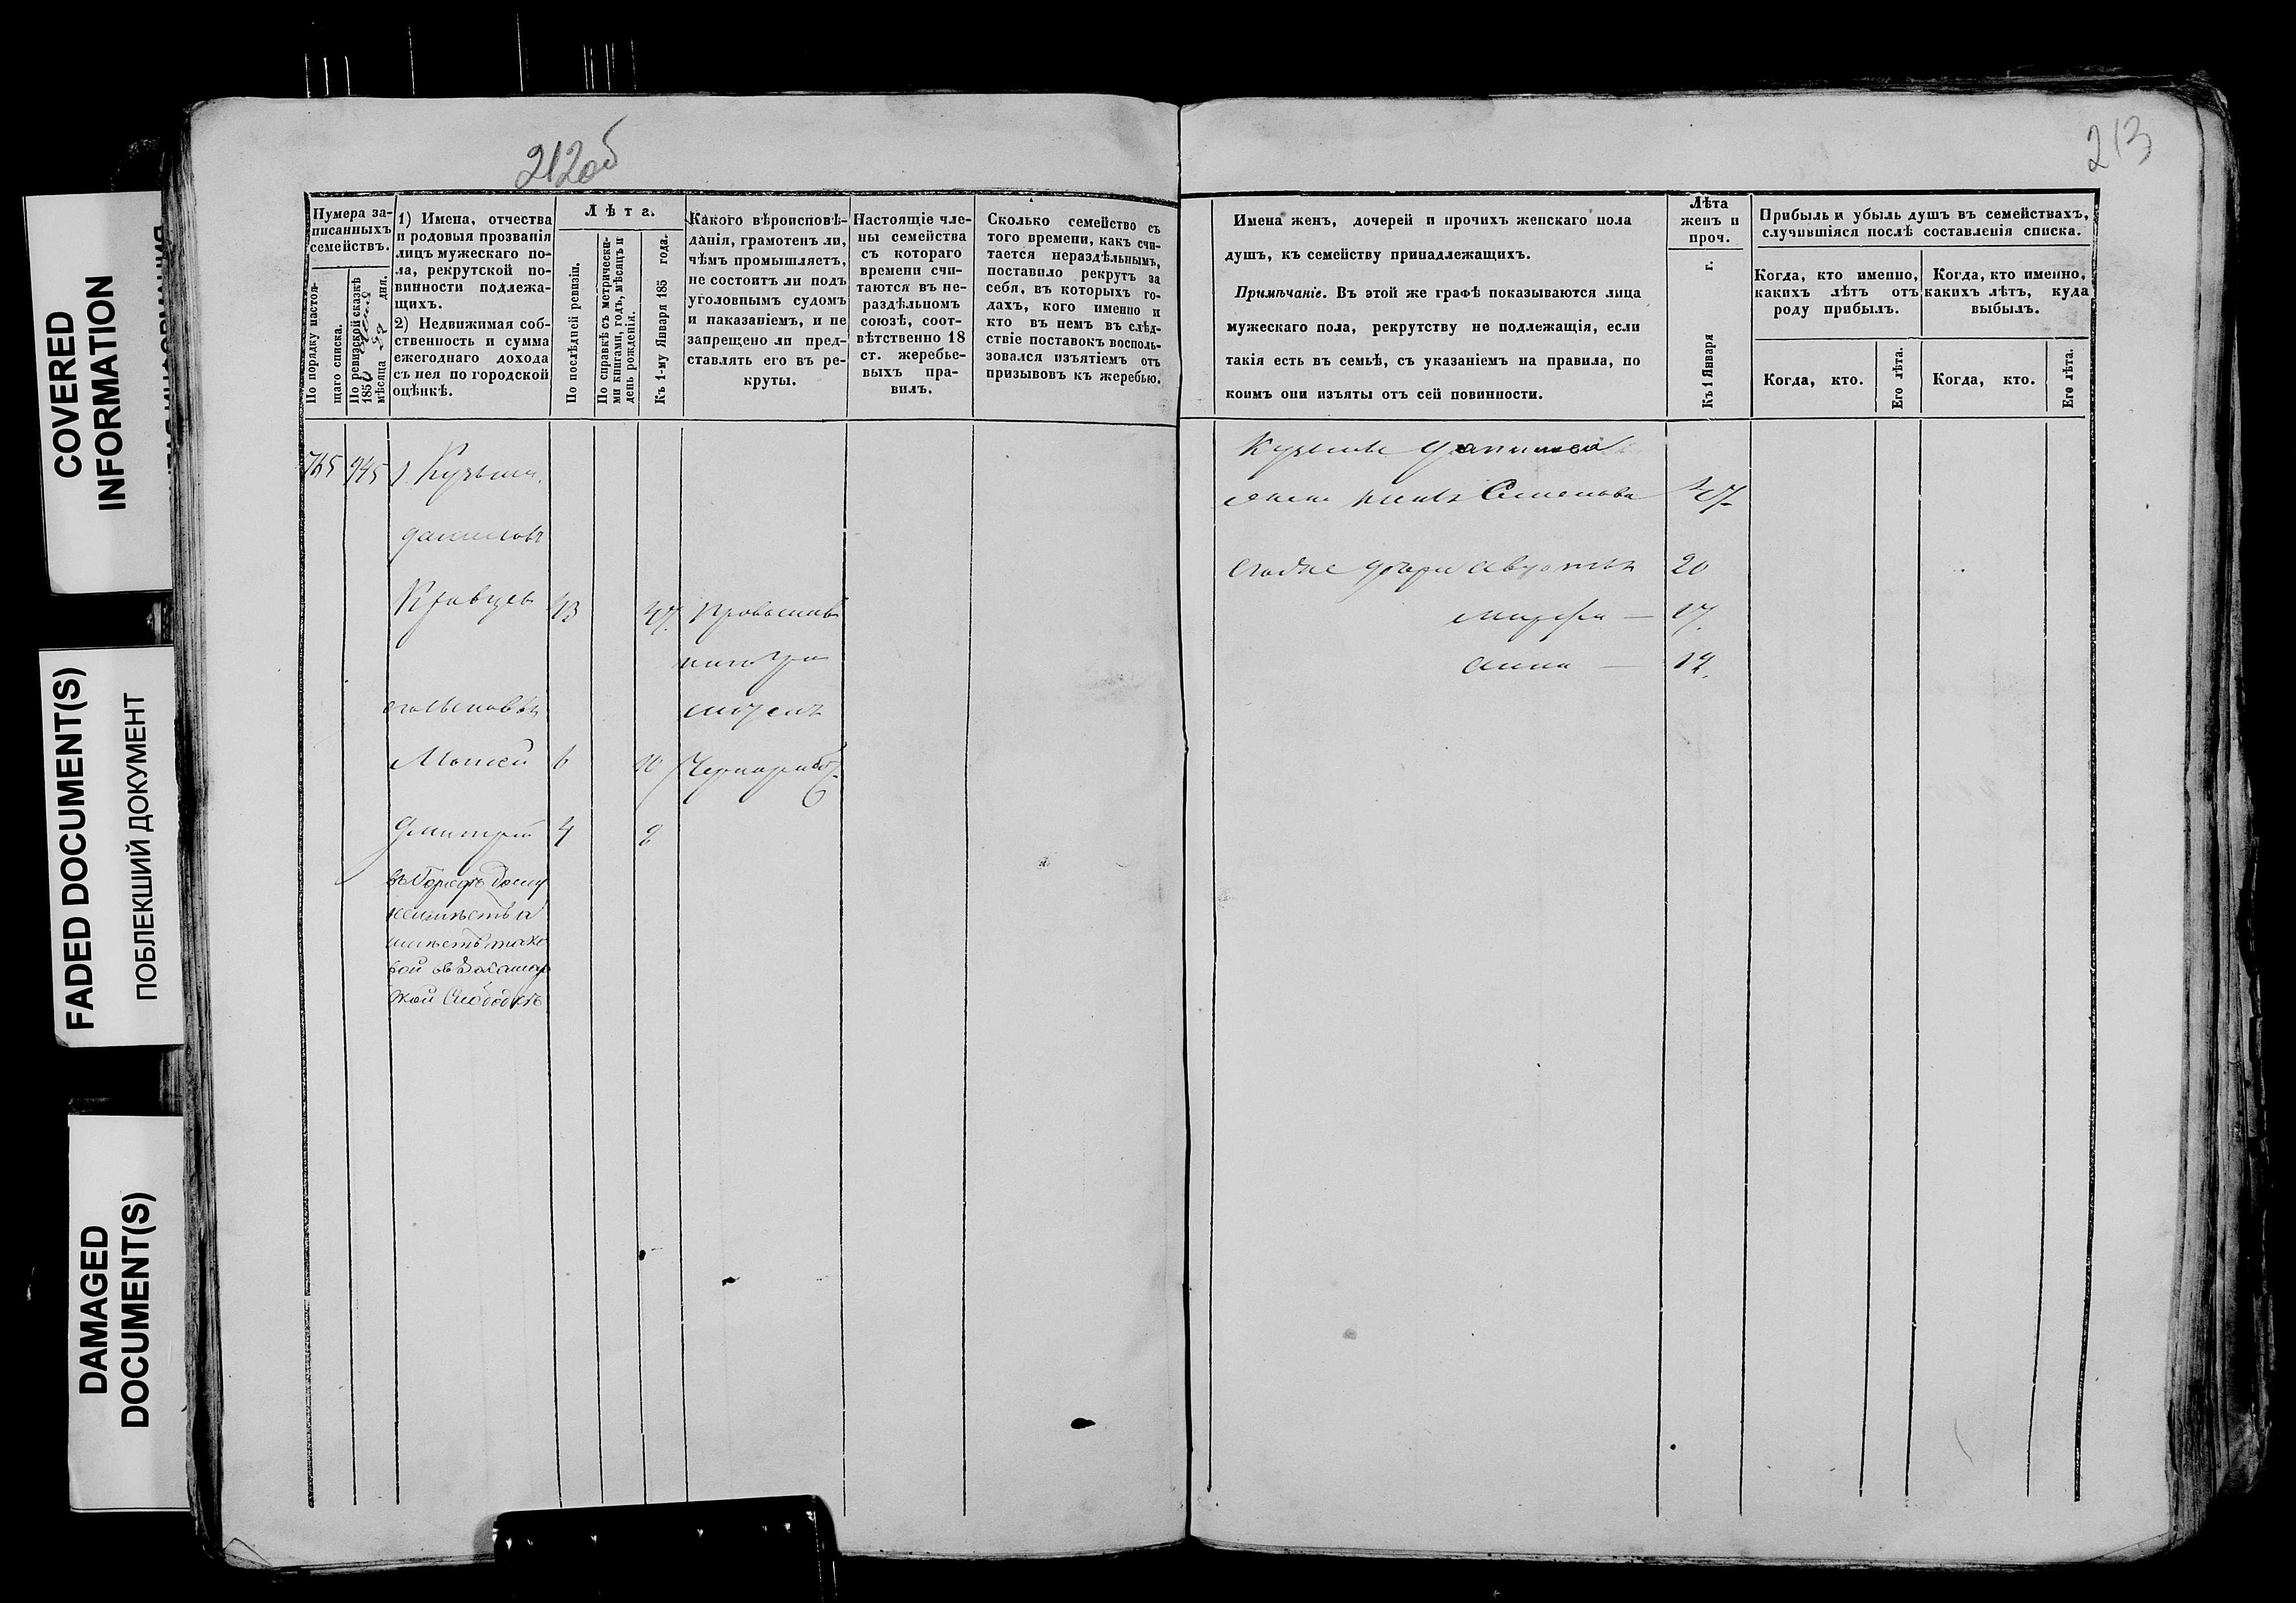 COVERED
INFORMATION
FADED DOCUMENT(S)
ПОБЛЕКШИЙ ДОКУМЕНТ
DAMAGED
DOCUMENT(S)
212об
Нумера за-
писанныхъ
семействъ.
По порядку настоя-
щаго списка.
По ревизской сказкѣ
1850
мѣсяца дня.
1) Имена, отчества
и родовыя прозванія
лицъ мужескаго по-
ла, рекрутской по-
винности подлежа-
щихъ.
2) Недвижимая соб-
ственность и сумма
ежегоднаго дохода
съ нея по городской
оцѣнкѣ.
Лѣта.
По послѣдней ревизіи.
По справкѣ съ метрически-
ми книгами, годъ, мѣсяцъ и
день рожденія.
Къ 1-му Января 185 года.
Какого вѣроисповѣ-
данія, грамотенъ ли,
чѣмъ промышляетъ,
не состоитъ ли подъ
уголовнымъ судомъ
и наказаніемъ, и не
запрещено ли пред-
ставлять его въ ре-
круты.
Настоящіе чле-
ны семейства
съ котораго
времени счи-
таются въ не-
раздѣльномъ
союзѣ, соот-
вѣтственно 18
ст. жеребье-
выхъ пра-
вилъ.
Сколько семейство съ
того времени, какъ счи-
тается нераздѣльнымъ,
поставило рекрутъ за
себя, въ которыхъ го-
дахъ, кого именно и
кто въ немъ въ слѣд-
ствіе поставокъ восполь-
зовался изъятіемъ отъ
призывовъ къ жеребью.
765 945 1. Кузьма
Даниловъ
Кравцевъ 43 47
его сыновья
Моисей 6 10 Чернораб.
Дмитрій 4 8
въ Городѣ дому
неимѣетъ а
имѣетъ тако
вой
Слободкѣ
213
Имена женъ, дочерей и прочихъ женскаго пола
душъ, къ семейству принадлежащихъ.
Примѣчаніе. Въ этой же графѣ показываются лица
мужескаго пола, рекрутству не подлежащія, если
такія есть въ семьѣ, съ указаніемъ на правила, по
коимъ они изъяты отъ сей повинности.
Лѣта
женъ и
проч.
Къ 1 Января г.
Прибыль и убыль душъ въ семействахъ,
случившіяся послѣ составленія списка.
Когда, кто именно,
какихъ лѣтъ отъ
роду прибылъ.
Когда, кто именно,
какихъ лѣтъ, куда
выбылъ.
Когда, кто.
Его лѣта.
Когда, кто.
Его лѣта.
Кузьмы Данилова
жена Семенова 47
20
Марфа — 17
Анна — 12